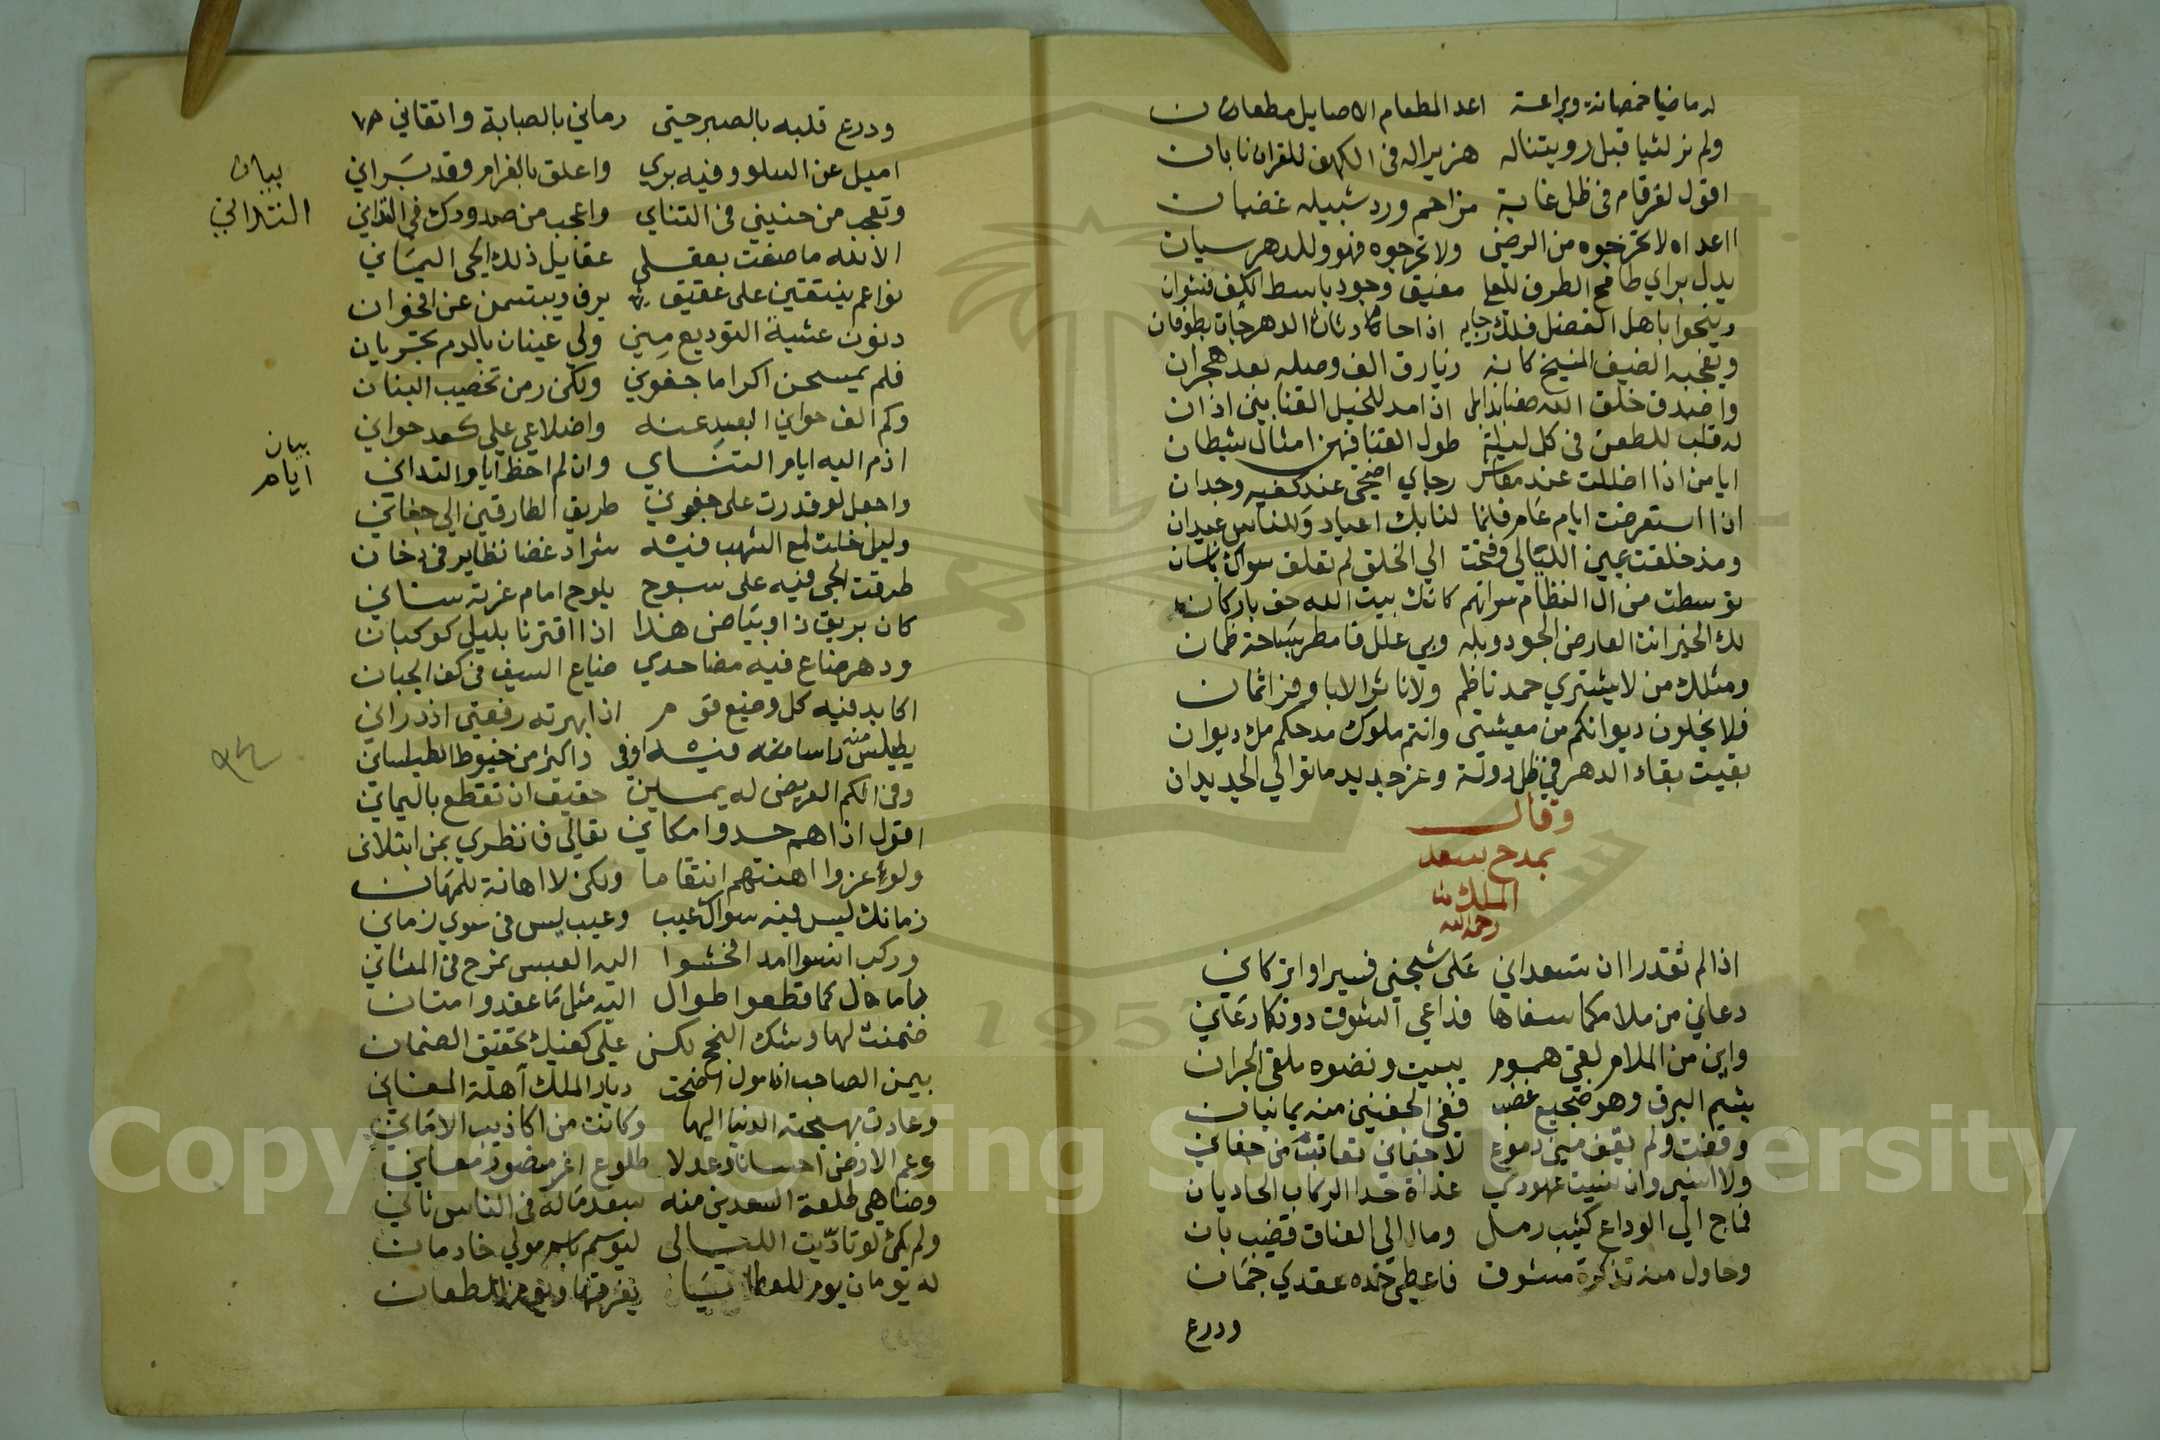 له ماضيا خمصانة وبراعة اعد المطعام الاصايل مطعان
ولم نر لثيا قبل رويتنا له هزبرا له في الكهف للقران نابان
اقول لغر قام في ظل غابة مزاحم ورد شبيله غضبان
ااعداه لا تخرجوه من الرضى ولا تحرجوه فهو وللدهر سيان
يدل براي طامح الطرف للعلي مفيق وجود باسط الكف نشوان
وينحوا باهل الفضل فلك رجايه اذا حاكما دثان الدهر جات بطوفان
ويفجيه الضيف المنيخ كانه زيارة الف وصله بعد هجران
واصدق خلق الله اذا مد للخيل القنا بين اذان
له قلب للطعن في كل لبلة طول القنا فهن امثال شيطان
ايا من اذا اضللت عند معاشر رجاي اضحى عند كفيه وجدان
اذا استعرضت ايام عام فانما لنا بك اعياد وللناس عيدان
ومذ خلقت يمين الليالي وفتحت الي الخلق لم تعلق سواك بانسان
توسطت من ال النظام سراتهم كانك بيت الله حف باركان
لك الخير انت العارض الجود وبله وبي علل فامطر بساحة ظمان
ومثلك من لا يشتري حمد ناظم ولا ناثر الا باوفر اثمان
فلا يخلون ديوانكم من معيشتى وانتم ملوك مدحكم مل ديوان
بقيت بقاء الدهر في ظل دولة وعز جديد ما توالي الجديدان
وقال
يمدح سعد
الملك
رحمه الله
اذا لم تقدرا ان تسعداني على شجني فسيرا واتركاني
دعاني من ملامكما سفاها فداعي الشوق دونكما دعاني
واين من الملام لقي هموم يبيت ونضوه ملقى الجران
يشيم البرق وهو ضجيع عضب ففي الجفنين منه يمانيان
وقفت ولم تقف مني دموع لاجفاني تعاتبت من جفاني
ولا انسي وان نسيت عهودي غداة حدا الركاب الحاديان
فماج الي الوداع كثيب رمل ومال الي العناق قضيب بان
وحاول منه تذكرة مشوق فاعطي خده عقدي جمان
ودرع
ودرع قلبه بالصبر حتى رماني بالصبابة واتقاني
اميل عن السلو وفيه بري واعلق بالغرام وقد براني
وتعجب من حنيني في التناي واعجب من صدودك في التداني
الا لله ما صنعت بعقلي عقايل ذلك الحي اليماني
نواعم ينتقبن على عقيق يرف ويبتسمن عن اقحوان
دنون عشية التوديع مني ولي عينان بالدم تجريان
فلم يمسحن اكراما جفوني ولكن رمن تخضيب البنان
وكم الف حواني البعد عنه واضلاعي علي كمد حواني
اذم اليه ايام التناي وان لم احظ ايام التداني
واجعل لو قدرت على جفوني طريق الطارقين الي جفاني
وليل خلت لمع الشهب فيه شرار غضا تظاير في دخان
طرقت الحي فيه على سبوح يلوح امام غرته سناني
كان بريق ذا وبياض هذا اذا اقترنا بليل كوكبان
ودهر ضاع فيه مضا حدي ضياع السيف في كف الجبان
اكابد فيه كل وضيع قوم اذا بهرته رفعتي ازدراني
يطيلس منه راسا فيه واكثر من خيوط الطيلسان
وفي الكم العريض له يمين حقيق ان تقطع باليماني
اقول اذا هم حسدوا مكاني تعالي فانظري بمن ابتلاني
ولو عزوا اهنتهم انتقاما ولكن لا اهانة للمهان
زمانك ليس فيه سواك عيب وعيب ليس في سوي زماني
وركب انسوا امدا فحثوا اليه العيس تمرح في المثاني
بما قطعوا طوال اليه مثل ما عقدوا متان
ضمنت لها وشك النجح لكن على كفيك تحقيق الضمان
بيمن الصاحب المامول اضحت ديار الملك آهلة المغاني
وعادت بهجة الدنيا اليها وكانت من اكاذيب الاماني
وعم الارض احسانا وعدلا طلوع اغر منصور معان
وضاهي طلعة السعدين منه بسعد ماله في الناس ثاني
ولم تكن لو تادبت الليالى ليوسم باسم مولي خادمان
له يومان يوم للعطايا يفرقها ويوم للطعان
بيان
التداني
بيان
ايام